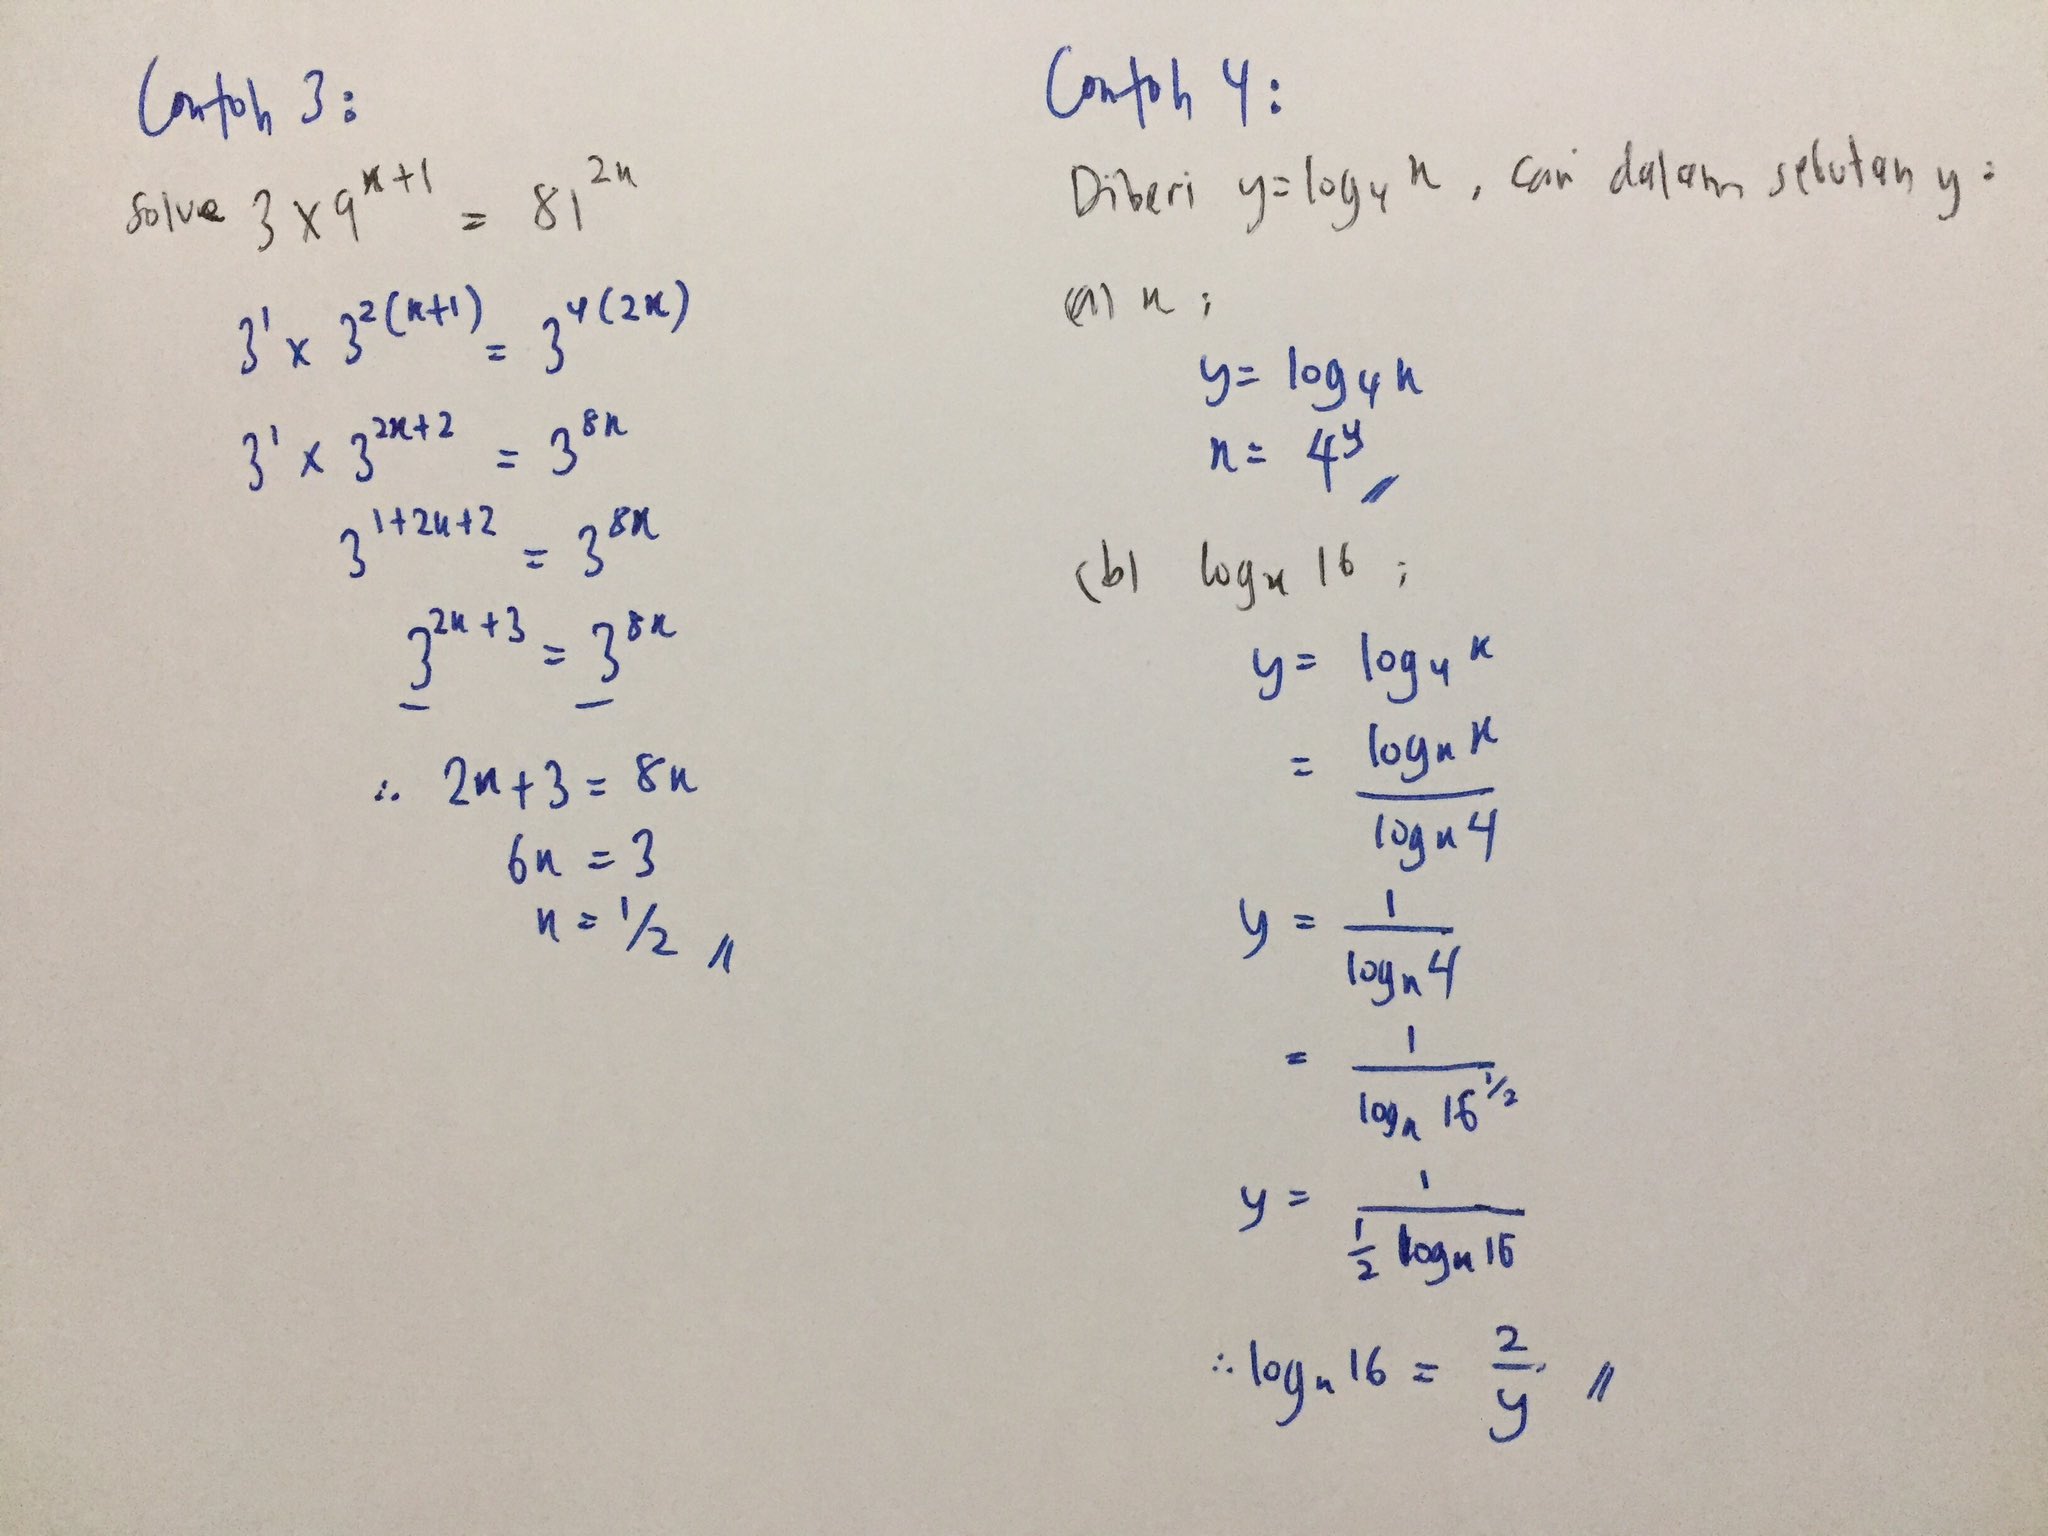 Contoh 3:
Solve 3 × 9^(x+1) = 81^(2x)
3^1 × 3^(2(x+1)) = 3^(4(2x))
3^1 × 3^(2x+2) = 3^(8x)
3^(1+2x+2) = 3^(8x)
3^(2x+3) = 3^(8x)
∴ 2x+3 = 8x
6x = 3
x = 1/2 //
Contoh 4:
Diberi y = log₄ x, cari dalam sebutan y:
(a) x ;
y = log₄ x
x = 4^y //
(b) logₓ 16 ;
y = log₄ x
= logₓ x / logₓ 4
y = 1 / logₓ 4
= 1 / logₓ 16^(1/2)
y = 1 / (1/2 logₓ 16)
∴ logₓ 16 = 2/y //